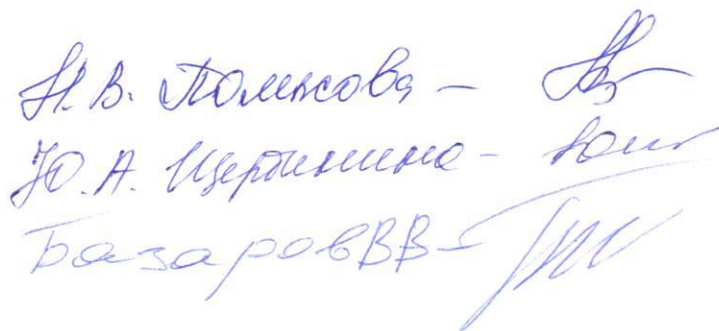 Н. В. Полысова –
Ю. А. Щербинина –
Базаров ВВ –